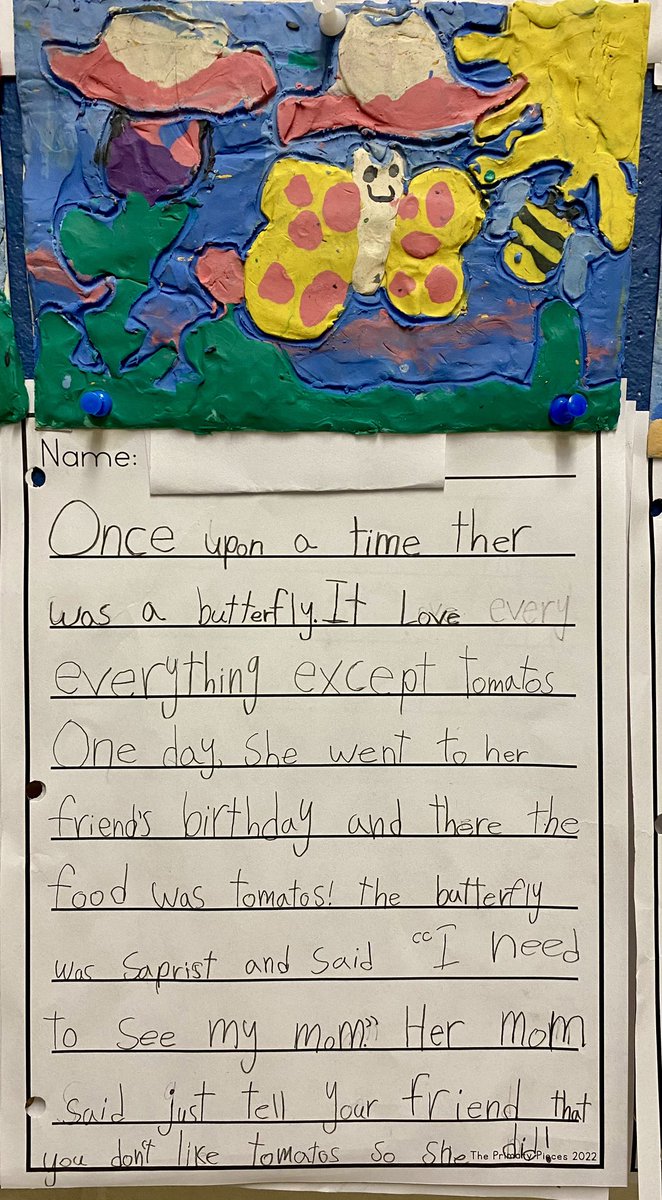 Name:
Once upon a time ther
was a butterfly. It Love every
everything except tomatos
One day, she went to her
friend's birthday and there the
food was tomatos! the butterfly
was saprist and said "I need
to see my mom." Her mom
said just tell your friend that
you don't like tomatos so she did!
The Primary Pieces 2022